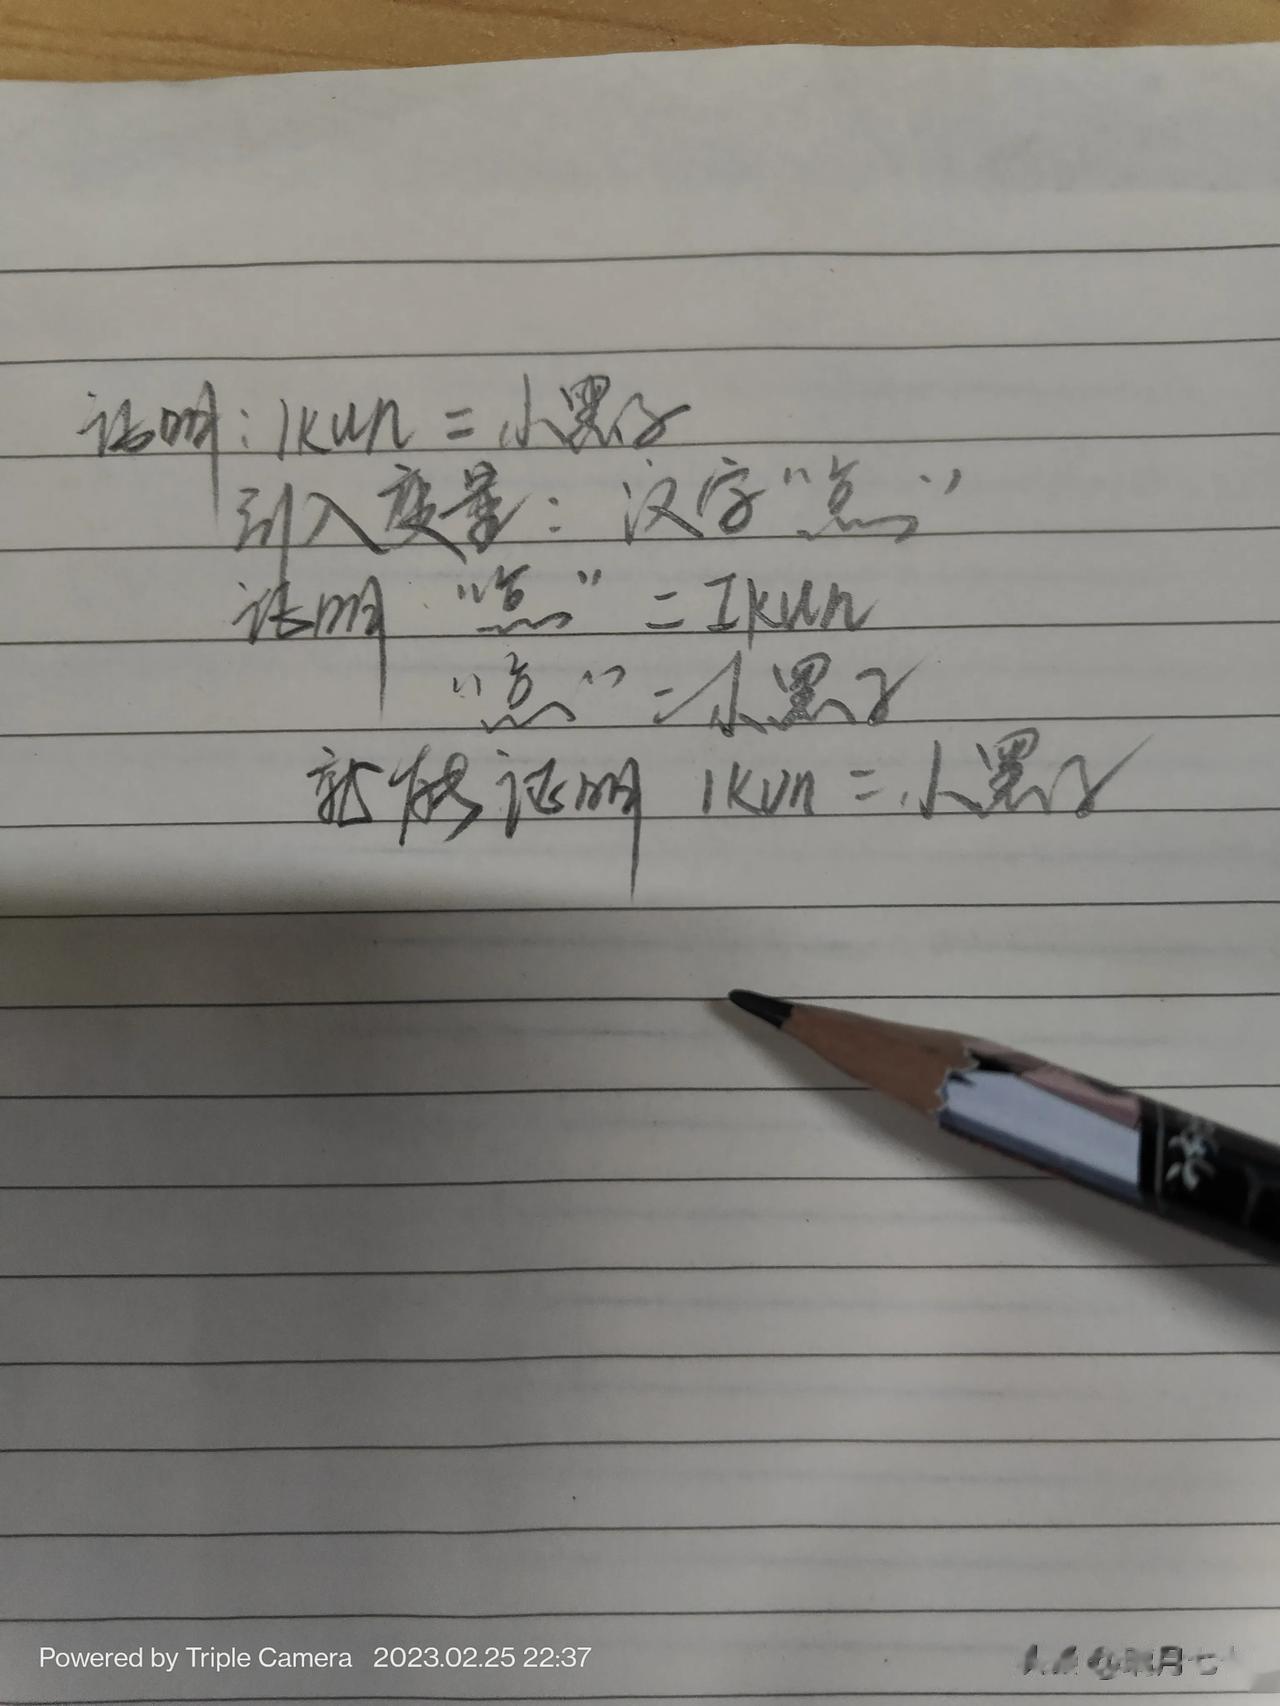 证明:Ikun=小黑子
引入变量:汉字"点"
证明 "点"=Ikun
"点"=小黑子
就能证明 Ikun=小黑子
Powered by Triple Camera 2023.02.25 22:37